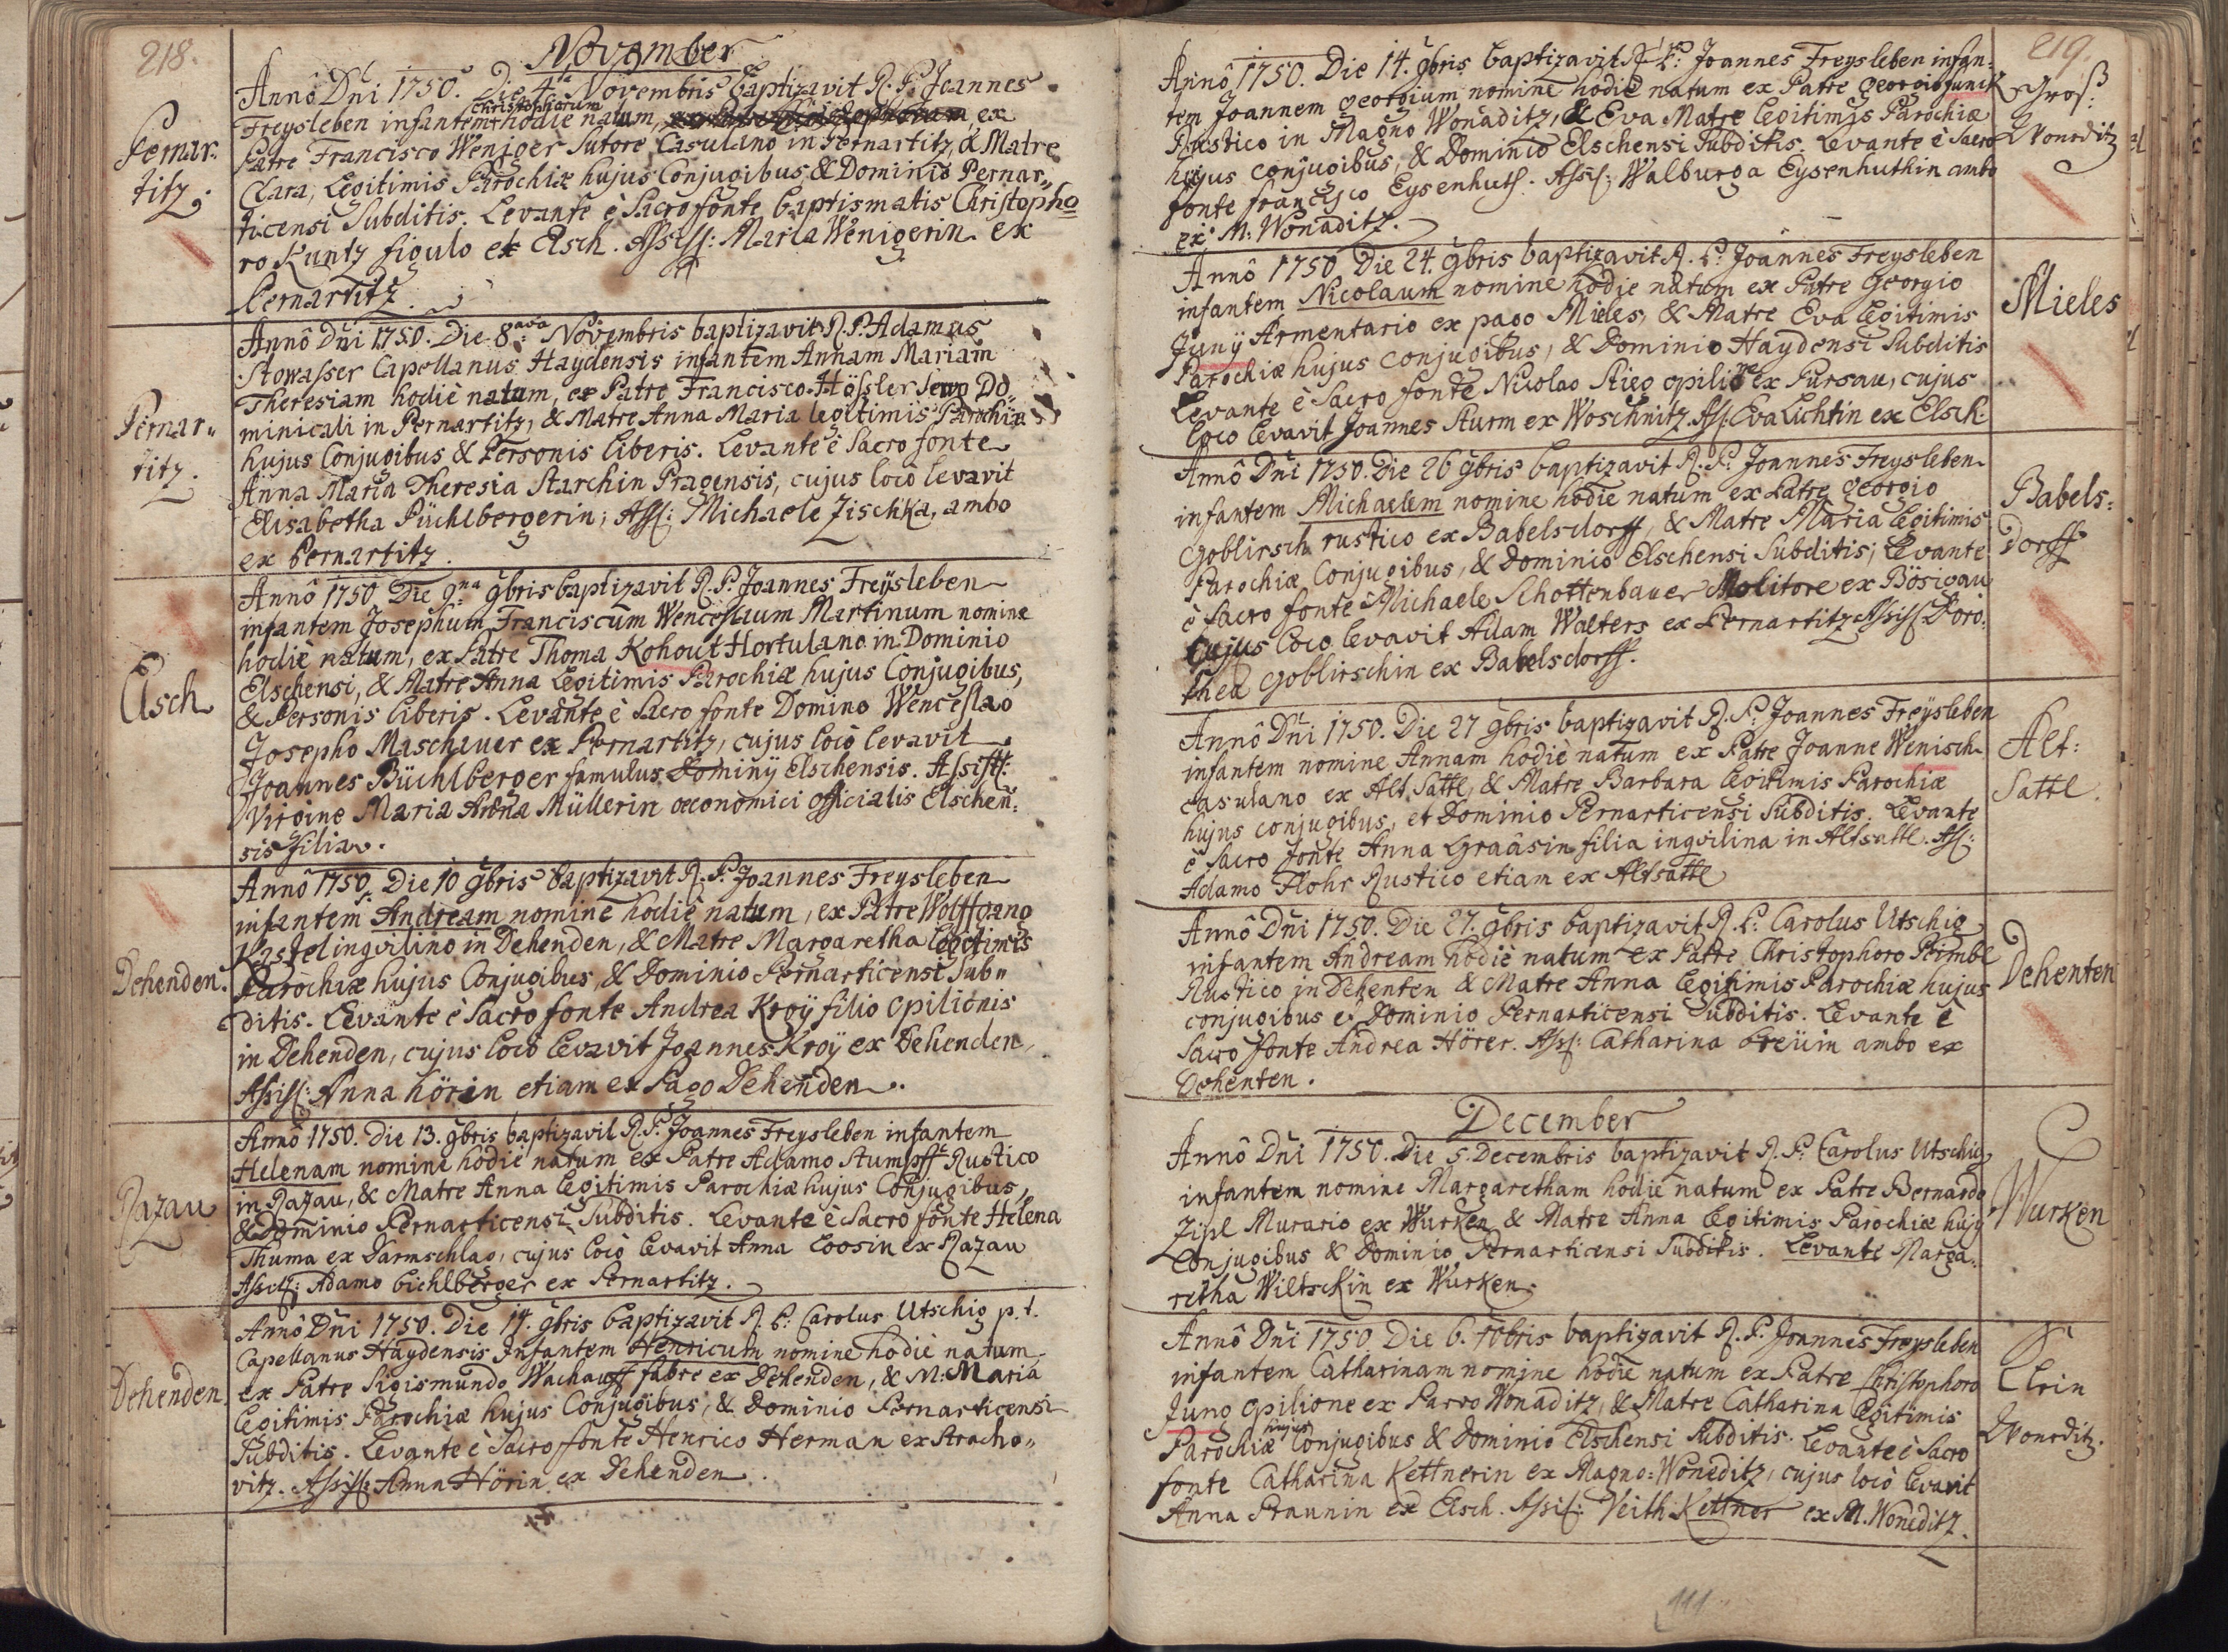 218.
November
Pernar:
titz.
Annô Dni 1750. Die 4ta Novembris baptizavit R. P. Joannes
Christophorum
Freysleben infantem hodie natum, ex
Patre Francisco Weniger Sutore Casulano in Pernartitz, & Matre
Clara, Legitimis Parochiæ hujus Conjugibus & Dominio Pernar„
ticensi Subditis. Levante è Sacro fonte baptismatis Christopho
ro Kuntz figulo ex Elsch. Assist: Maria Wenigerin ex
Pernartitz.
Pernar„
titz.
Annô Dni 1750. Die 8ava Novembris baptizavit R. P. Adamus
Stowasser Capellanus Haydensis infantem Annam Mariam
Theresiam hodiè natum, ex Patre Francisco Hössler servo Do„
minicali in Pernartitz, & Matre Anna Maria legitimis Parochiæ
hujus Conjugibus & Personis liberis. Levante è Sacro fonte
Anna Maria Theresia Starchin Pragensis, cujus locô levavit
Elisabetha Püchlbergerin, Ass: Michaele Zischka, ambo
ex Pernartitz.
Elsch
Annô 1750 Die 9na 9bris baptizavit R. P. Joannes Freÿsleben
infantem Josephum Franciscum Wenceslaum Martinum nomine
hodiè natum, ex Patre Thoma Kohout Hortulano in Dominio
Elschensi, & Matre Anna Legitimis Parochiæ hujus Conjugibus,
& Personis liberis. Levante è Sacro fonte Domino Wenceslao
Josepho Maschauer ex Pernartitz, cujus locô levavit
Joannes Büchlberger famulus Dominÿ Elschensis. Assist:
Virgine Maria Anna Müllerin œconomici officialis Elschen:
sis filia.
Dehenden.
Annô 1750. Die 10 9bris baptizavit R. P. Joannes Freysleben
infantem Andream nomine hodiè natum, ex Patre Wolffgang
Kastel inqvilino in Dehenden, & Matre Margaretha legitimis
Parochiæ hujus Conjugibus, & Dominio Pernarticensi Sub„
ditis. Levante è Sacro fonte Andrea Kroÿ filio Opilionis
in Dehenden, cujus locô levavit Joannes Kroÿ ex Dehenden,
Assist: Anna Hörin etiam ex Pago Dehenden.
Razau
Annô 1750. Die 13. 9bris baptizavit R. P. Joannes Freysleben infantem
Helenam nomine hodiè natum ex Patre Adamo Stumpff Rustico
in Razau, & Matre Anna legitimis Parochiæ hujus Conjugibus,
& Dominio Pernarticensi Subditis. Levante è Sacro fonte Helena
Thuma ex Darmschlag, cujus locô levavit Anna Loosin ex Razau
Assist: Adamo Bichlberger ex Pernartitz.
Dehenden.
Annô Dni 1750. Die 14. 9bris baptizavit R. P. Carolus Utschig p. t.
Capellanus Haydensis Infantem Henricum nomine hodiè natum,
ex Patre Sigismundo Wachauff fabro ex Dehenden, & M: Maria
legitimis Parochiæ hujus Conjugibus, & Dominio Pernarticensi
Subditis. Levante è Sacro fonte Henrico Herman ex Stracho„
vitz. Assist: Anna Hörin ex Dehenden.
219.
Groß:
Wonaditz
Annô 1750. Die 14. 9bris baptizavit R. P. Joannes Freysleben infan„
tem Joannem Georgium nomine hodiè natum ex Patre Georgio Junck
Rustico in Magno Wonaditz, & Eva Matre legitimis Parochiæ
hujus conjugibus, & Dominio Elschensi Subditis. Levante è Sacro
fonte Francisco Eysenhuth. Assist: Walburga Eysenhuthin ambo
ex M: Wonaditz.
Mieles
Annô 1750 Die 24. 9bris baptizavit R. P. Joannes Freysleben
infantem Nicolaum nomine hodie natum ex Patre Georgio
Jung Armentario ex pago Mieles, & Matre Eva legitimis
Parochiæ hujus conjugibus, & Dominio Haydensi Subditis
Levante è Sacro fonte Nicolao Stieg opilione ex Pursau, cujus
loco levavit Joannes Sturm ex Woschnitz. Ass: Eva Lichtin ex Elsch.
Babels:
Dorff
Annô Dni 1750. Die 26 9bris baptizavit R. P. Joannes Freysleben
infantem Michaelem nomine hodie natum ex Patre Georgio
Goblirsch rustico ex Babelsdorff, & Matre Maria legitimis
Parochiæ Conjugibus, & Dominio Elschensi Subditis; Levante
è Sacro fonte Michaele Schottenbauer Molitore ex Bösigau
Cujus loco levavit Adam Walters ex Pernartitz Assist Doro:
thea Goblirschin ex Babelsdorff.
Alt:
Sattl.
Annô Dni 1750. Die 27 9bris baptizavit R. P. Joannes Freysleben
infantem nomine Annam hodiè natum ex Patre Joanne Wenisch
casulano ex Alt Sattl, & Matre Barbara legitimis Parochiæ
hujus conjugibus, et Dominio Pernarticensi Subditis. Levante
è Sacro fonte Anna Graâsin filia inqvilina in Altsattl. Ass:
Adamo Flohr Rustico etiam ex Altsattl
Dehenten
Annô Dni 1750. Die 27. 9bris baptizavit R. P. Carolus Utschig
infantem Andream hodiè natum ex Patre Christophoro Peimbl
Rustico in Dehenten & Matre Anna legitimis Parochiæ hujus
conjugibus et Dominio Pernarticensi Subditis. Levante è
Sacro fonte Andrea Hörer. Ass: Catharina Breÿin ambo ex
Dehenten.
December
Wurken
Annô Dni 1750. Die 5 Decembris baptizavit R. P. Carolus Utschig
infantem nomine Margaretham hodiè natum ex Patre Bernardo
Zipl Murario ex Wurken & Matre Anna legitimis Parochiæ hujus
Conjugibus & Dominio Pernarticensi Subditis. Levante Marga:
retha Wiltschkin ex Wurken.
Klein
Wonoditz.
Annô Dni 1750. Die 6. 10bris baptizavit R. P. Joannes Freysleben
infantem Catharinam nomine hodie natum ex Patre Christophoro
Jung opilione ex Parvo Wonaditz, & Matre Catharina legitimis
hujus
Parochiæ Conjugibus & Dominio Elschensi Subditis. Levante è Sacro
fonte Catharina Kettnerin ex Magno: Woneditz, cujus locô levavit
Anna Praunin ex Elsch. Assist: Veith Kettner ex M. Woneditz.
111